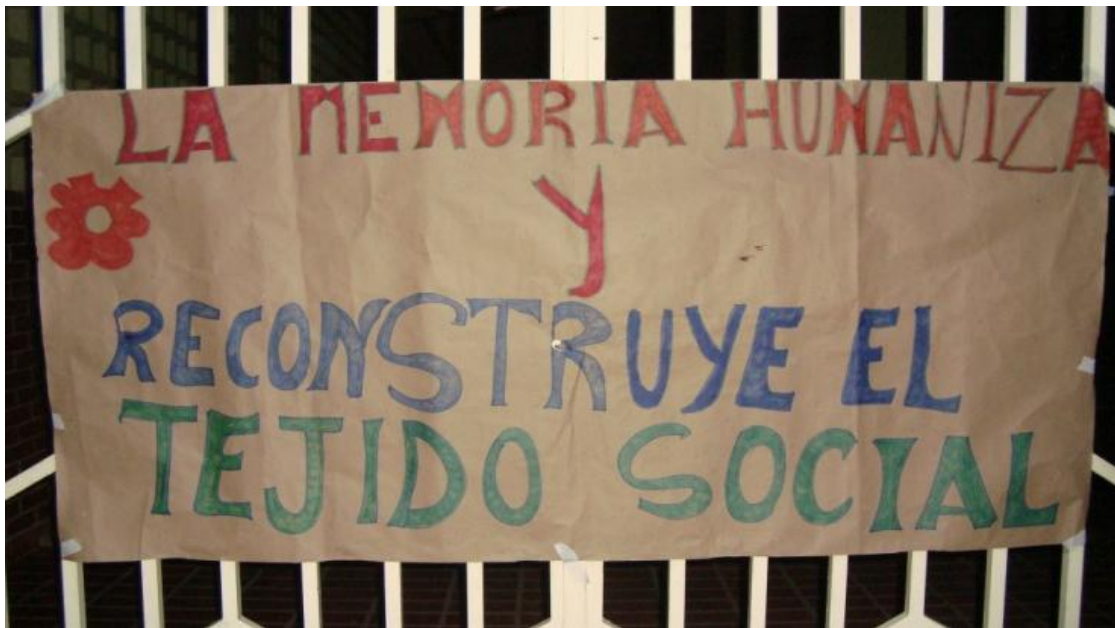 LA MEMORIA HUMANIZA
Y
RECONSTRUYE EL
TEJIDO SOCIAL